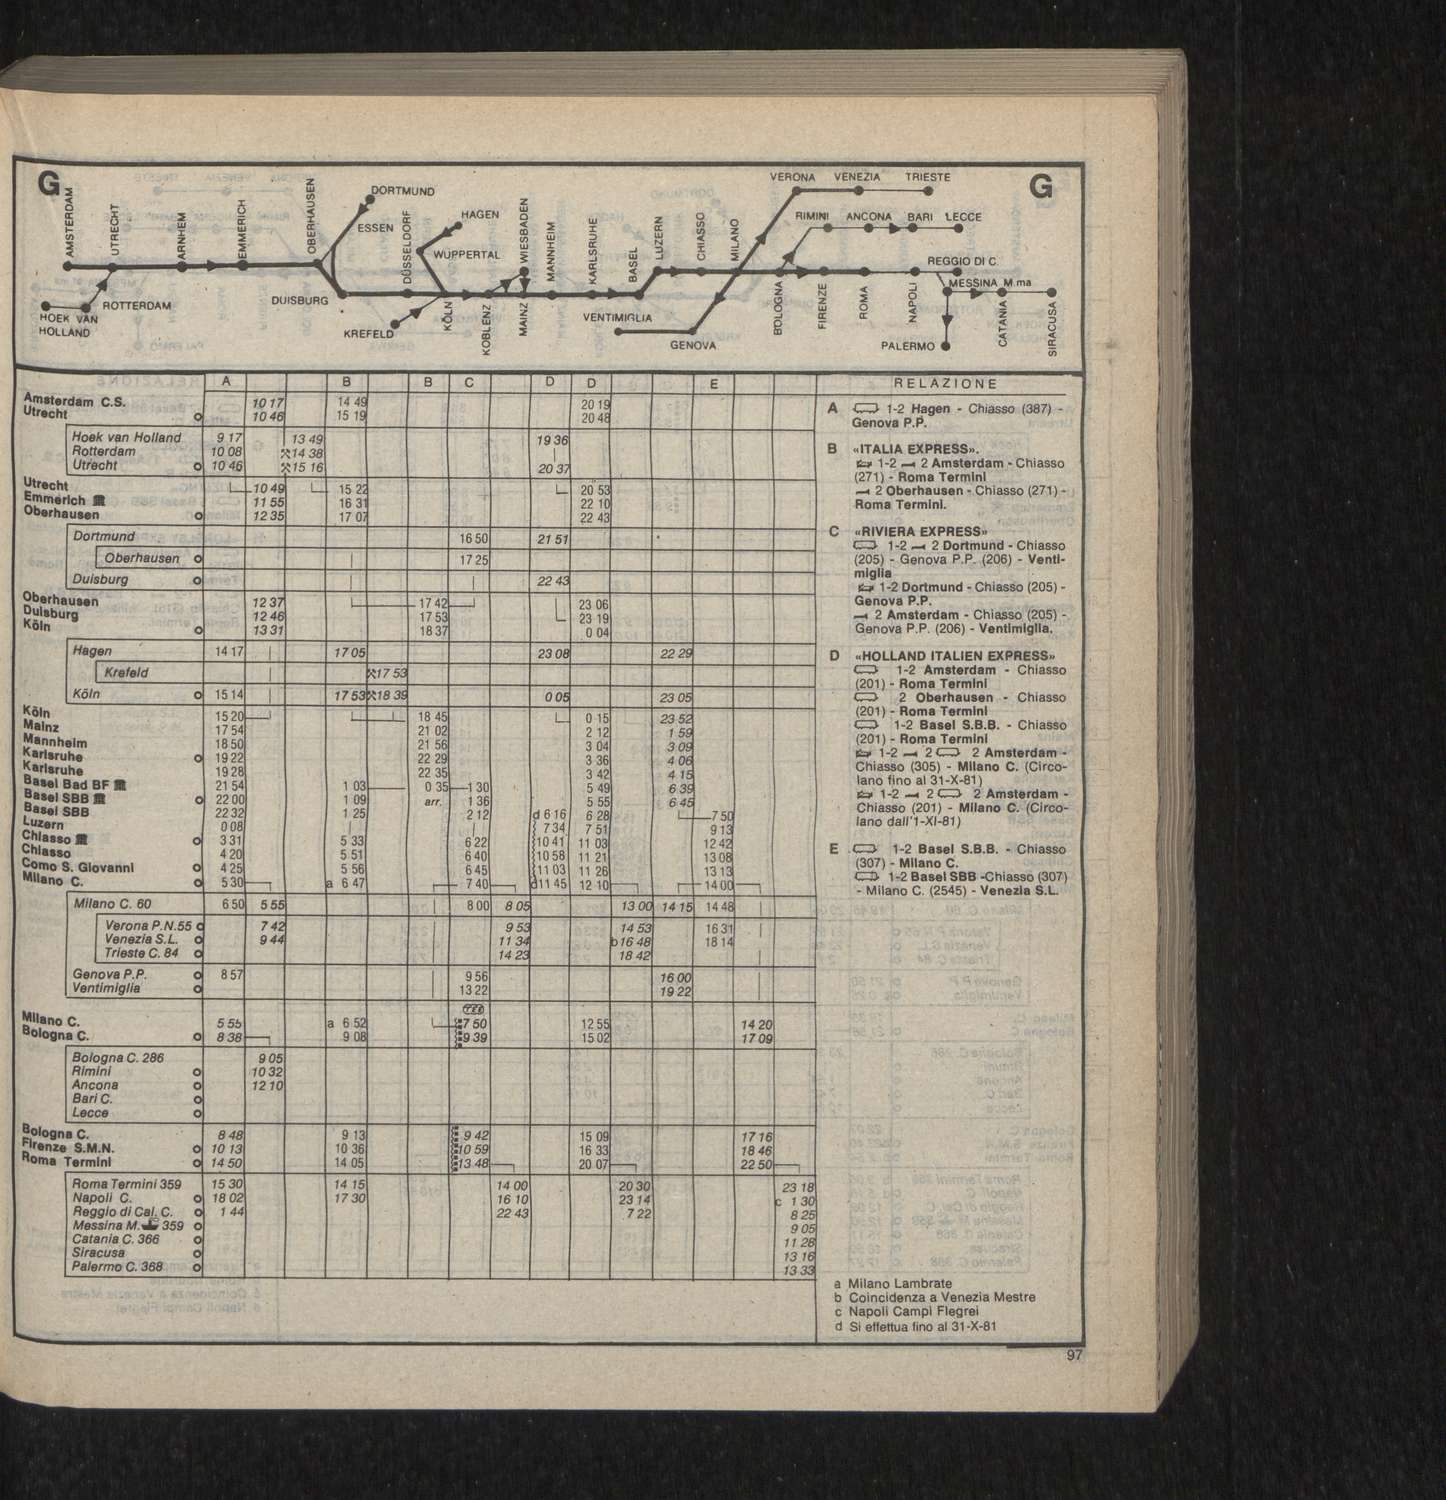 G
G
AMSTERDAM
UTRECHT
ARNHEM
EMMERICH
OBERHAUSEN
DORTMUND
ESSEN
DÜSSELDORF
HAGEN
WUPPERTAL
WIESBADEN
MANNHEIM
KARLSRUHE
BASEL
LUZERN
CHIASSO
MILANO
VERONA VENEZIA TRIESTE
RIMINI ANCONA BARI LECCE
REGGIO DI C.
MESSINA M.ma
HOEK VAN HOLLAND
ROTTERDAM
DUISBURG
KREFELD
KÖLN
KOBLENZ
MAINZ
VENTIMIGLIA
GENOVA
BOLOGNA
FIRENZE
ROMA
NAPOLI
PALERMO
CATANIA
SIRACUSA
A B B C D D E RELAZIONE
Amsterdam C.S. 10 17 14 49 20 19
Utrecht 10 46 15 19 20 48
Hoek van Holland 9 17 13 49 19 36
Rotterdam 10 08 14 38
Utrecht 10 46 15 16 20 37
Utrecht 10 49 15 22 20 53
Emmerich 11 55 16 31 22 10
Oberhausen 12 35 17 07 22 43
Dortmund 16 50 21 51
Oberhausen 17 25
Duisburg 22 43
Oberhausen 12 37 17 42 23 06
Duisburg 12 46 17 53 23 19
Köln 13 31 18 37 0 04
Hagen 14 17 17 05 23 08 22 29
Krefeld 17 53
Köln 15 14 17 53 18 39 0 05 23 05
Köln 15 20 18 45 0 15 23 52
Mainz 17 54 21 02 2 12 1 59
Mannheim 18 50 21 56 3 04 3 09
Karlsruhe 19 22 22 29 3 36 4 06
Karlsruhe 19 28 22 35 3 42 4 15
Basel Bad BF 21 54 1 03 0 35 1 30 5 49 6 39
Basel SBB 22 00 1 09 arr. 1 36 5 55 6 45
Basel SBB 22 32 1 25 2 12 d 6 16 6 28 7 50
Luzern 0 08 7 34 7 51 9 13
Chiasso 3 31 5 33 6 22 10 41 11 03 12 42
Chiasso 4 20 5 51 6 40 10 58 11 21 13 08
Como S. Giovanni 4 25 5 56 6 45 11 03 11 26 13 13
Milano C. 5 30 a 6 47 7 40 d 11 45 12 10 14 00
Milano C. 60 6 50 5 55 8 00 8 05 13 00 14 15 14 48
Verona P.N. 55 7 42 9 53 14 53 16 31
Venezia S.L. 9 44 11 34 b 16 48 18 14
Trieste C. 84 14 23 18 42
Genova P.P. 8 57 9 56 16 00
Ventimiglia 13 22 19 22
TEE
Milano C. 5 55 a 6 52 7 50 12 55 14 20
Bologna C. 8 38 9 08 9 39 15 02 17 09
Bologna C. 286 9 05
Rimini 10 32
Ancona 12 10
Bari C.
Lecce
Bologna C. 8 48 9 13 9 42 15 09 17 16
Firenze S.M.N. 10 13 10 36 10 59 16 33 18 46
Roma Termini 14 50 14 05 13 48 20 07 22 50
Roma Termini 359 15 30 14 15 14 00 20 30 23 18
Napoli C. 18 02 17 30 16 10 23 14 c 1 30
Reggio di Cal. C. 1 44 22 43 7 22 8 25
Messina M. 359 9 05
Catania C. 366 11 28
Siracusa 13 16
Palermo C. 368 13 33
A 1-2 Hagen - Chiasso (387) -
Genova P.P.
B «ITALIA EXPRESS».
1-2 2 Amsterdam - Chiasso
(271) - Roma Termini
2 Oberhausen - Chiasso (271) -
Roma Termini.
C «RIVIERA EXPRESS»
1-2 2 Dortmund - Chiasso
(205) - Genova P.P. (206) - Venti-
miglia
1-2 Dortmund - Chiasso (205) -
Genova P.P.
2 Amsterdam - Chiasso (205) -
Genova P.P. (206) - Ventimiglia.
D «HOLLAND ITALIEN EXPRESS»
1-2 Amsterdam - Chiasso
(201) - Roma Termini
2 Oberhausen - Chiasso
(201) - Roma Termini
1-2 Basel S.B.B. - Chiasso
(201) - Roma Termini
1-2 2 2 Amsterdam -
Chiasso (305) - Milano C. (Circo-
lano fino al 31-X-81)
1-2 2 2 Amsterdam -
Chiasso (201) - Milano C. (Circo-
lano dall'1-XI-81)
E 1-2 Basel S.B.B. - Chiasso
(307) - Milano C.
1-2 Basel SBB -Chiasso (307)
- Milano C. (2545) - Venezia S.L.
a Milano Lambrate
b Coincidenza a Venezia Mestre
c Napoli Campi Flegrei
d Si effettua fino al 31-X-81
97